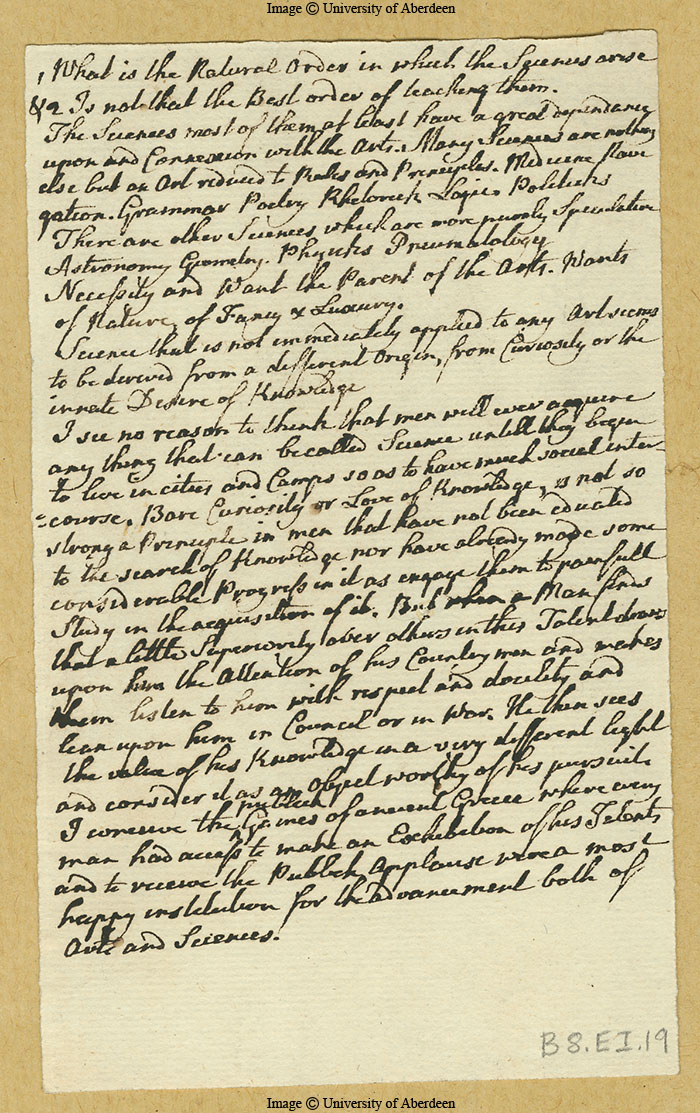 Image © University of Aberdeen
1 What is the Natural Order in which the Sciences arise
& 2 Is not that the Best order of teaching them.
The Sciences most of them at least have a great dependance
upon and Connexion with the Arts. Many Sciences are nothing
else but an Art reduced to Rules and Principles. Medicine Nave
gation. Grammar Poetry Rhetorick Logic. Politicks
There are other Sciences which are more purely Speculative
Astronomy Geometry. Physicks Pneumatology
Necessity and Want the Parent of the Arts. Wants
of Nature, of Fancy & Luxury.
Science that is not immediately applied to any Art seems
to be derived from a different Origin, from Curiosity or the
innate Desire of Knowledge
I see no reason to think that men will ever acquire
any thing that can be called Science untill they begin
to live in cities and Camps so as to have much social inter-
=course. Bare Curiosity or Love of Knowledge, is not so
strong a Principle in men that have not been educated
to the search of Knowledge nor have already made some
considerable Progress in it as engage them to painfull
Study in the acquisition of it. But when a Man finds
that a little Superiority over others in this Talent draws
upon him the Attention of his Country men and makes
them listen to him with respect and docility and
lean upon him in Council or in War. He then sees
the value of his Knowledge in a very different light
and consider it as an Object worthy of his pursuit
I conceive the publick Games of ancient Greece where every
man had access to make an Exhibition of his Talents
and to receive the Publick Applause were a most
happy institution for the advancement both of
Arts and Sciences.
B 8.EI.19
Image © University of Aberdeen